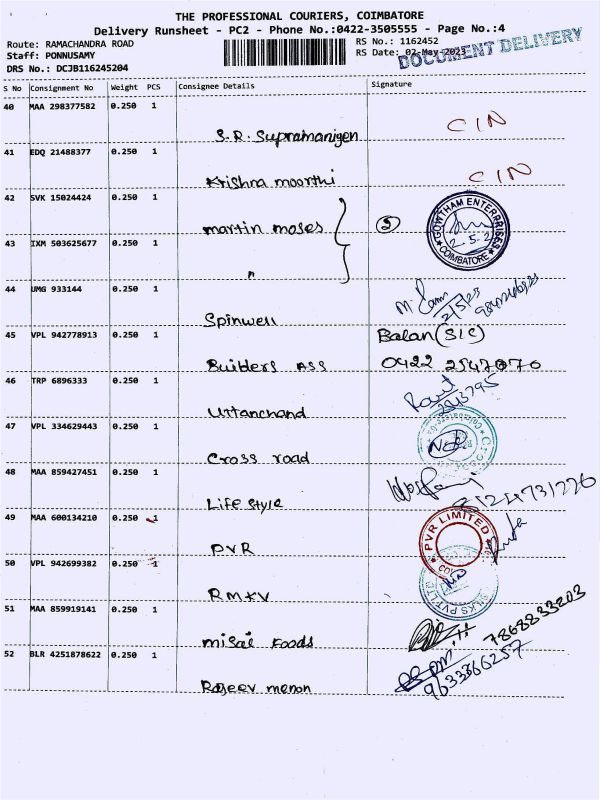 THE PROFESSIONAL COURIERS, COIMBATORE
Delivery Runsheet - PC2 - Phone No.:0422-3505555 - Page No.:4
Route: RAMACHANDRA ROAD RS No.: 1162452
Staff: PONNUSAMY RS Date: 02-May-2023
DOCUMENT DELIVERY
DRS No.: DCJB116245204
S No Consignment No Weight PCS Consignee Details Signature
40 MAA 298377582 0.250 1
S.R. Supramanigen CIN
41 EDQ 21488377 0.250 1
Krishna moorthi CIN
42 SVK 15024424 0.250 1
martin moses } ②
GOWTHAM ENTERPRISES
COIMBATORE
43 IXM 503625677 0.250 1
"
44 UMG 933144 0.250 1
Spinwell
2/5/23
45 VPL 942778913 0.250 1 Balan (S/C)
Builders Ass 0422 2547070
46 TRP 6896333 0.250 1
Uttanchand
47 VPL 334629443 0.250 1
Cross road
48 MAA 859427451 0.250 1
Life style
49 MAA 600134210 0.250 1
PVR LIMITED
PVR
50 VPL 942699382 0.250 1
RMKV
51 MAA 859919141 0.250 1
misai Foods 7868833203
52 BLR 4251878622 0.250 1
Rajeev menon 9633366257